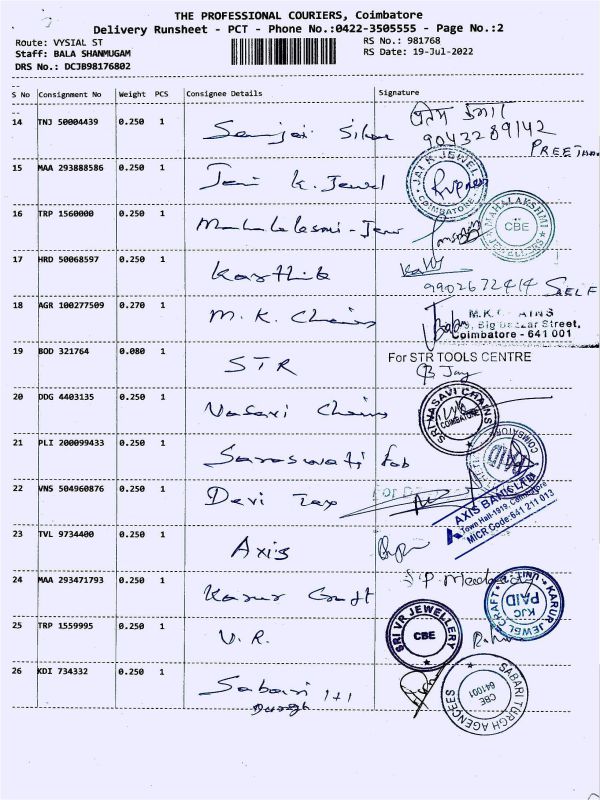 THE PROFESSIONAL COURIERS, Coimbatore
Delivery Runsheet - PCT - Phone No.:0422-3505555 - Page No.:2
Route: VYSIAL ST
RS No.: 981768
Staff: BALA SHANMUGAM
RS Date: 19-Jul-2022
DRS No.: DCJB98176802
S No Consignment No Weight PCS Consignee Details Signature
14 TNJ 50004439 0.250 1 Sanjai
9043289142
PREETHAM
15 MAA 293888586 0.250 1 Jai K. Jewel
JAI K JEWEL COIMBATORE
16 TRP 1560000 0.250 1 Mahalaksmi - Jew
MAHALAKSHMI JEWELLERS CBE
17 HRD 50068597 0.250 1 Karthik
9902672414 SELF
18 AGR 100277509 0.270 1 M. K. Chains
M.K. CHAINS
Big Bazaar Street,
Coimbatore - 641 001
19 BOD 321764 0.080 1 STR
For STR TOOLS CENTRE
20 DDG 4403135 0.250 1 Vasavi Chains
SRI VASAVI CHAINS COIMBATORE
21 PLI 200099433 0.250 1 Saraswati Fab
COIMBATORE PAID
22 VNS 504960876 0.250 1 Devi Tex
For
AXIS BANK LTD
Town Hall-1919, Coimbatore
MICR Code:641 211 013
23 TVL 9734400 0.250 1 Axis
24 MAA 293471793 0.250 1 Karur Craft
KARUR JEWEL CRAFT UNIT KJC PAID
25 TRP 1559995 0.250 1 V. R.
SRI VR JEWELLERY CBE
26 KDI 734332 0.250 1 Sabari 1+1
Durgh
SABARI TURGH AGENCEES CBE 641001